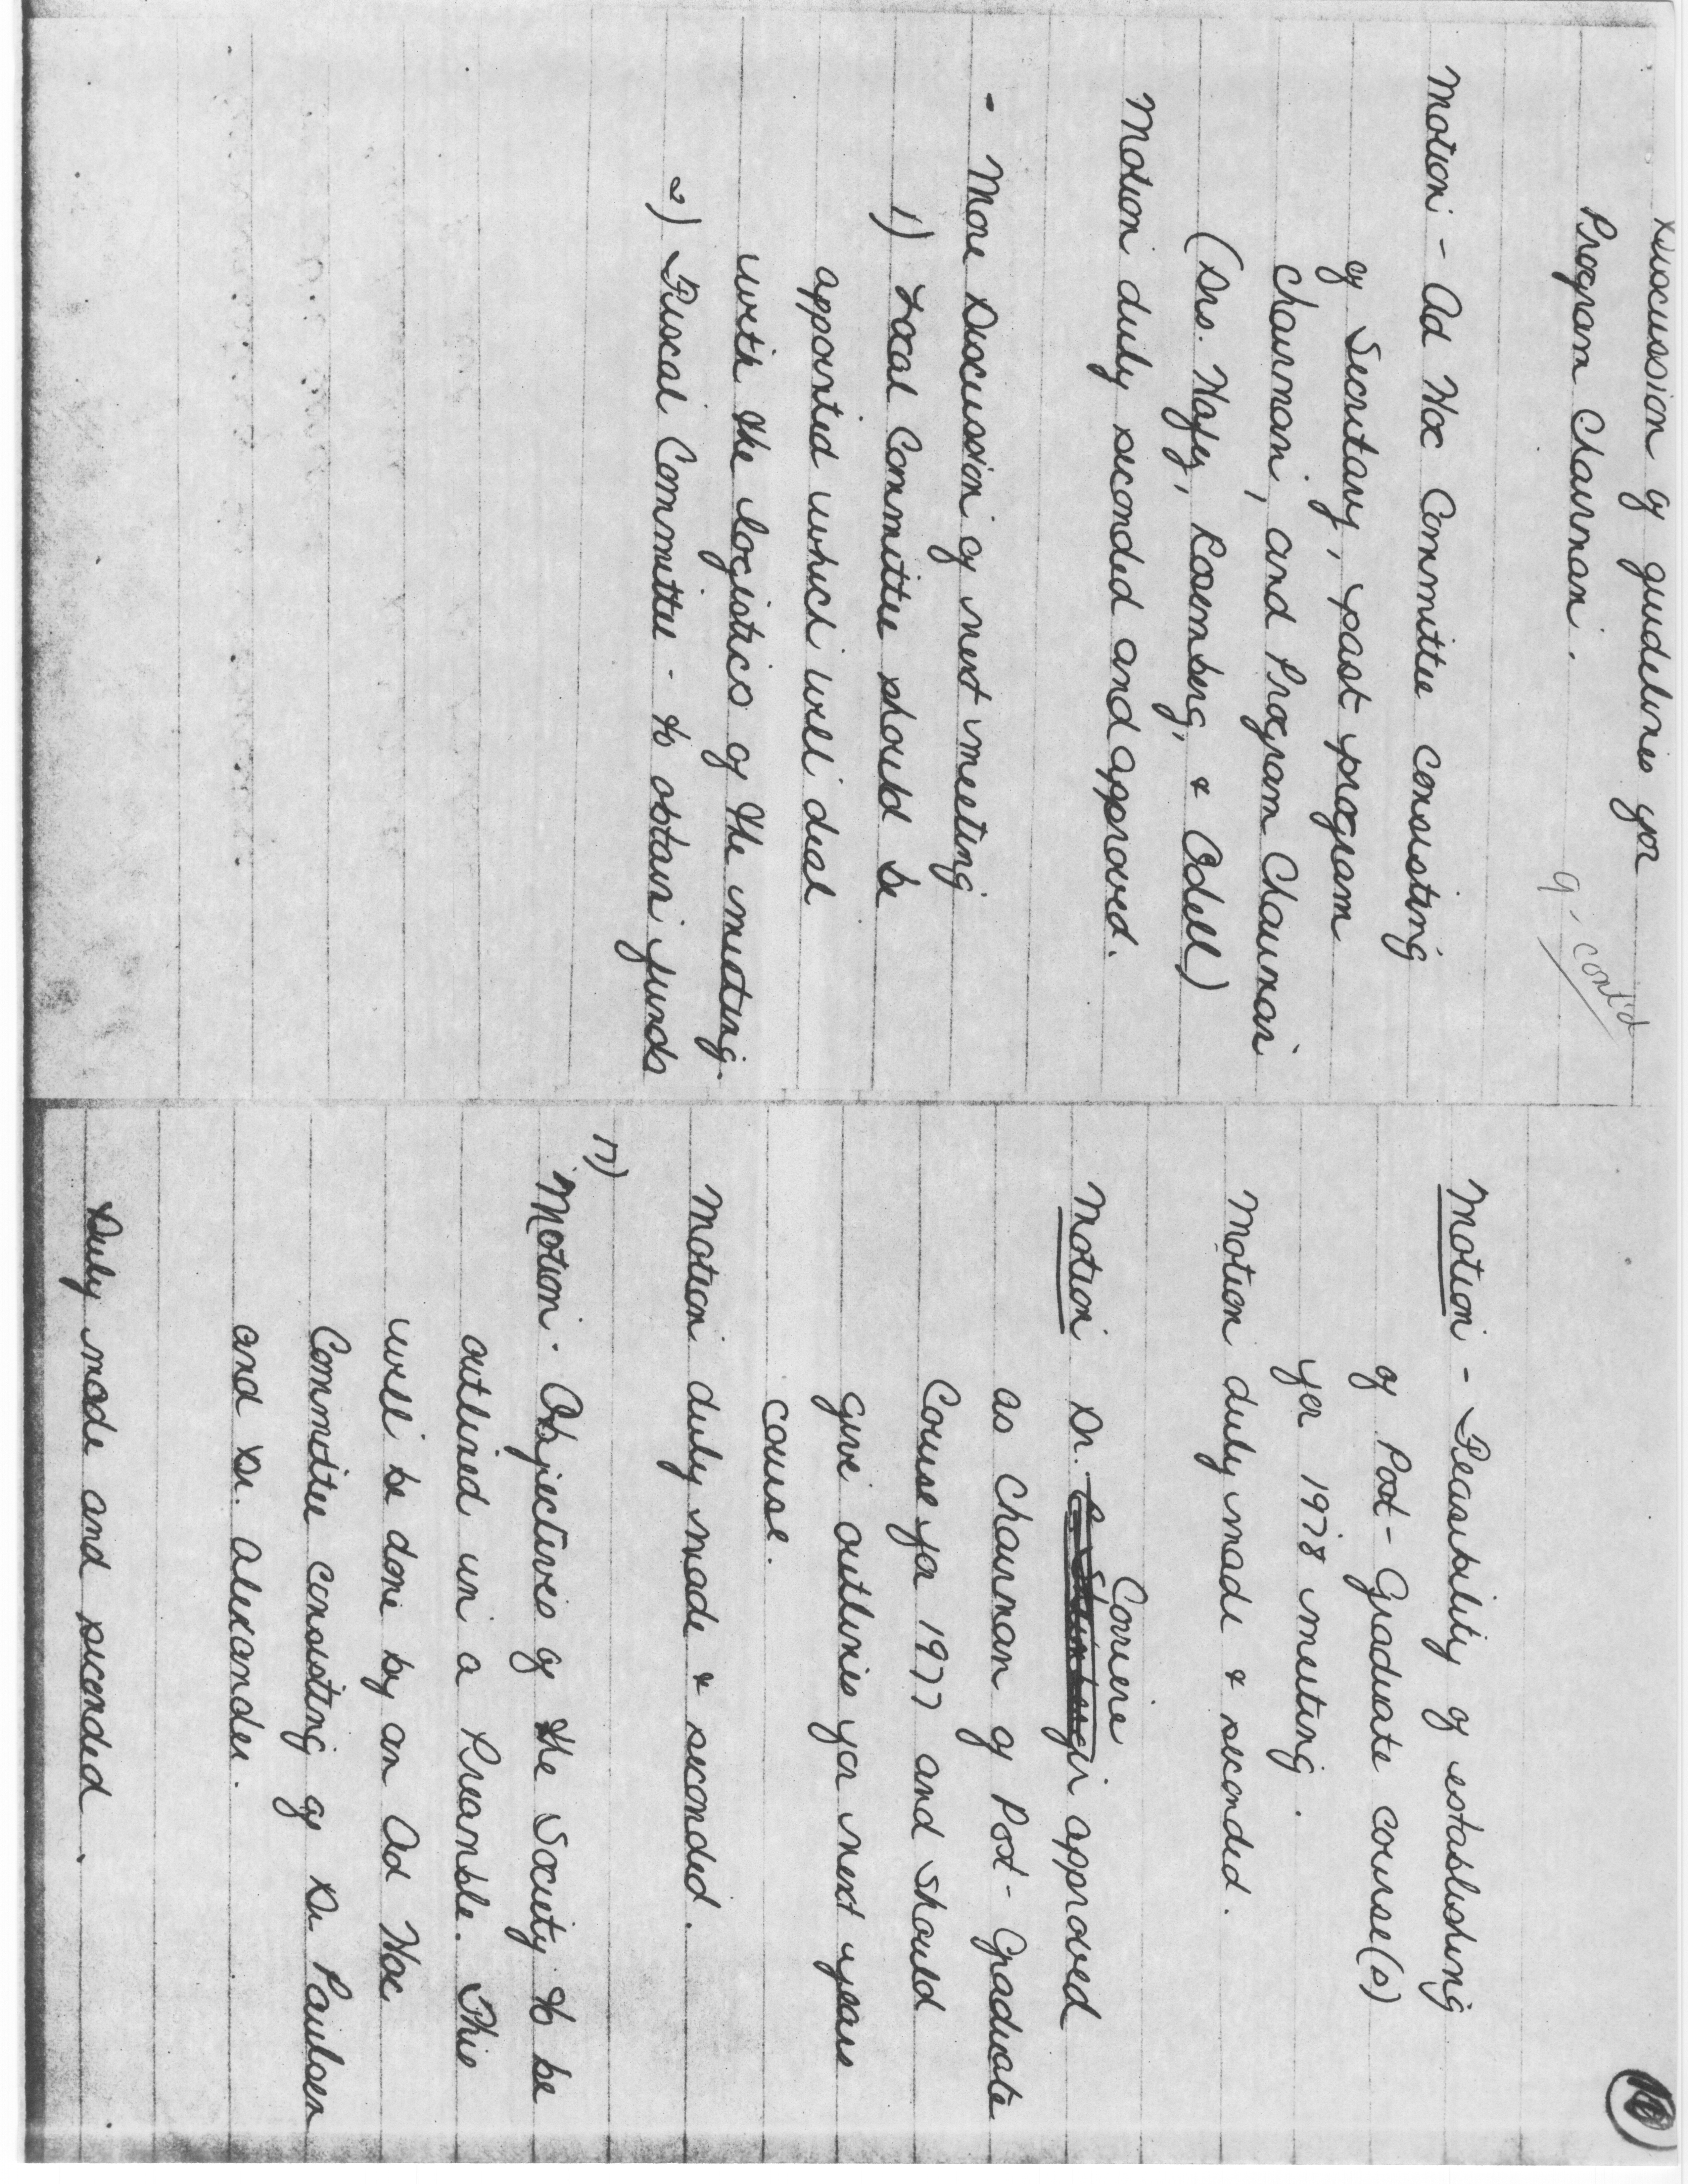 Discussion of guidelines for
Program Chairman.
9, cont'd
Motion - Ad Hoc Committee consisting
of Secretary, past program
chairman, and Program Chairman
(Drs. Hafez, Rosemberg, & Odell)
Motion duly seconded and approved.
- More Discussion of next meeting
1) Local Committee should be
appointed which will deal
with the logistics of the meeting.
2) Fiscal Committee - to obtain funds
10
Motion - Feasibility of establishing
of Post-Graduate course(s)
for 1978 meeting.
Motion duly made & seconded.
Corriere
Motion Dr. approved
as Chairman of Post-Graduate
Course for 1977 and should
give outlines for next years
course.
Motion duly made & seconded.
17)
Motion. Objectives of the Society to be
outlined in a Preamble. This
will be done by an Ad Hoc
Committee consisting of Dr Paulsen
and Dr. Alexander.
Duly made and seconded.